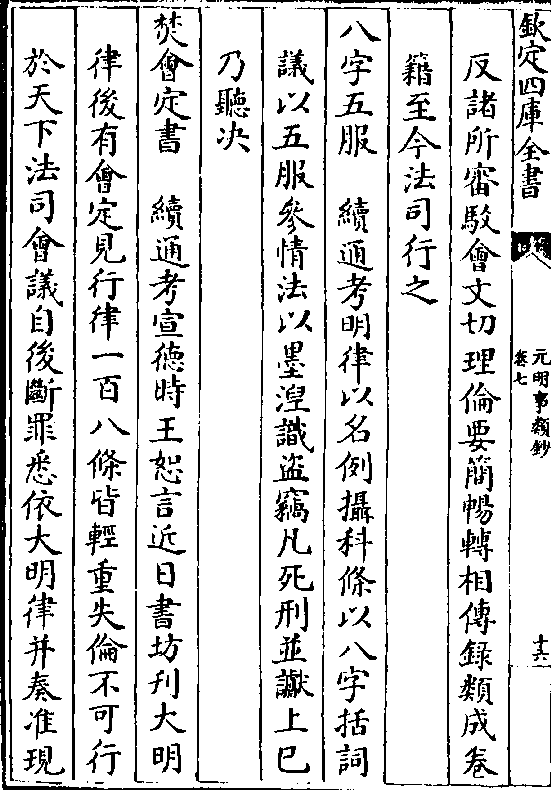 欽定四庫全書
元明事類鈔
卷七
十六
反諸所審駮會文切理倫要簡暢轉相傳錄類成卷
籍至今法司行之
八字五服　續通考明律以名例攝科條以八字括詞
議以五服參情法以墨湼識盜竊凡死刑並讞上已
乃聽决
焚會定書　續通考宣德時王恕言近日書坊刋大明
律後有會定見行律一百八條皆輕重失倫不可行
於天下法司會議自後斷罪悉依大明律并奏准現